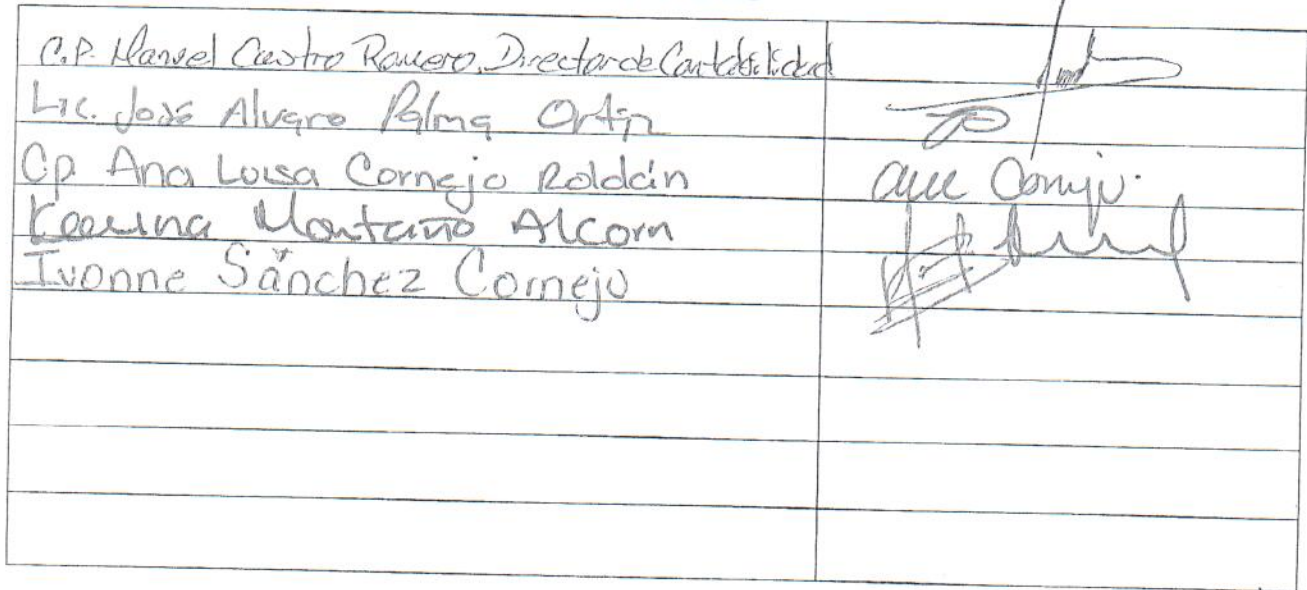 C.P. Manuel Castro Romero, Director de Contabilidad
Lic. José Alvaro Palma Ortiz
Cp. Ana Luisa Cornejo Roldán
Montaño Alcorn
Ivonne Sánchez Cornejo